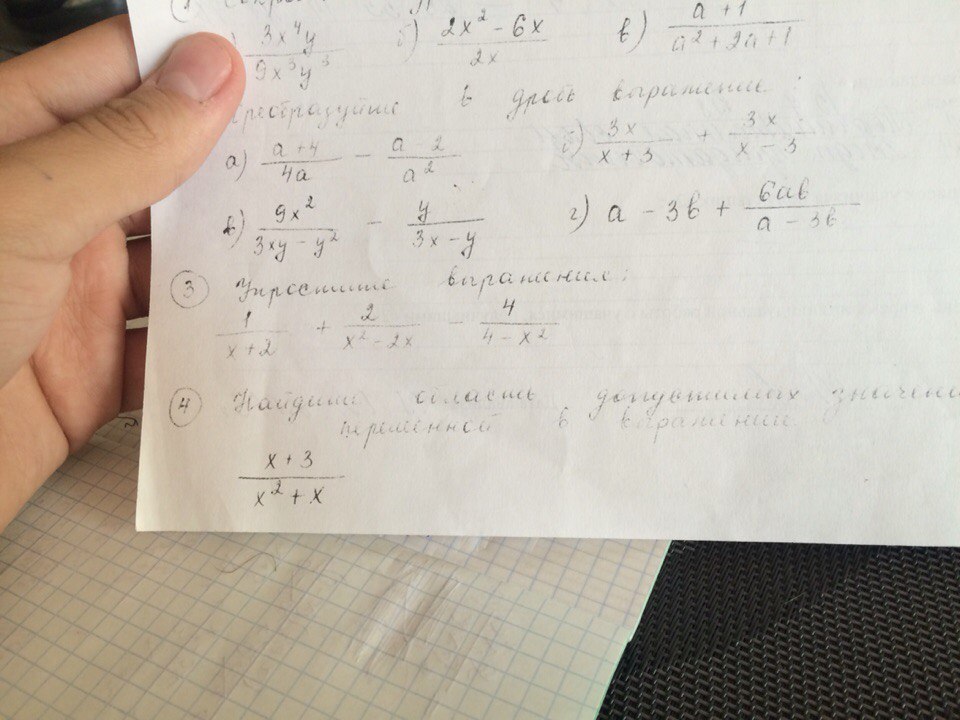 3x⁴y / 9x³y³ б) 2x² - 6x / 2x в) a + 1 / a² + 2a + 1
Преобразуйте в дробь выражение:
а) a + 4 / 4a - a 2 / a² б) 3x / x + 3 + 3x / x - 3
в) 9x² / 3xy - y² - y / 3x - y г) a - 3b + 6ab / a - 3b
3 Упростите выражение:
1 / x + 2 + 2 / x² - 2x - 4 / 4 - x²
4 Найдите область допустимых значени
переменной в выражении
x + 3 / x² + x